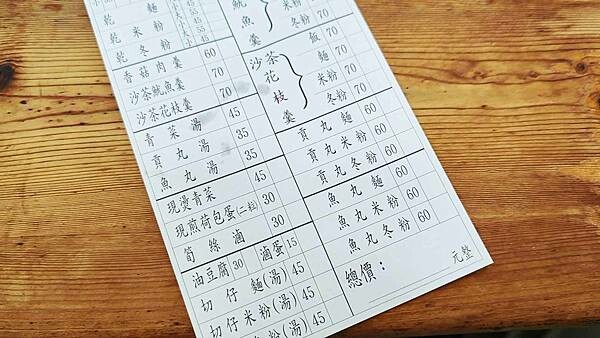 乾麵
乾米粉
乾冬粉
香菇肉羹 60
沙茶魷魚羹 70
沙茶花枝羹 70
青菜湯 45
貢丸湯 35
魚丸湯 35
現燙青菜 45
現煎荷包蛋(二粒) 30
筍絲滷 30
油豆腐 30 滷蛋 15
切仔麵(湯) 45
切仔米粉(湯) 45
粉(湯) 45
魷魚羹
米粉 70
冬粉 70
沙茶花枝羹
飯 70
麵 70
米粉 70
冬粉 70
貢丸麵 60
貢丸米粉 60
貢丸冬粉 60
魚丸麵 60
魚丸米粉 60
魚丸冬粉 60
總價：
元整